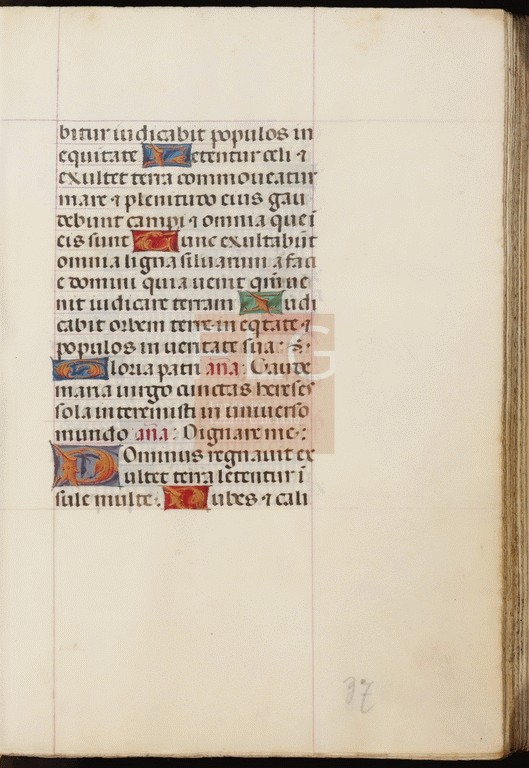 bitur iudicabit populos in
equitate Letentur celi ⁊
exultet terra commoueatur
mare ⁊ plenitudo eius gau
debunt campi ⁊ omnia que ī
eis sunt Tunc exultabūt
omnia ligna siluarum a faci
e domini quia uenit qm̄ ue
nit iudicare terram Iudi
cabit orbem terre in eqtate ⁊
populos in ueritate sua:
Gloria patri an̄a: Gaude
maria uirgo cunctas hereses
sola interemisti in uniuerso
mundo an̄a: Dignare me:
Dominus regnauit ex
ultet terra letentur ī
sule multe: Nubes ⁊ cali
37